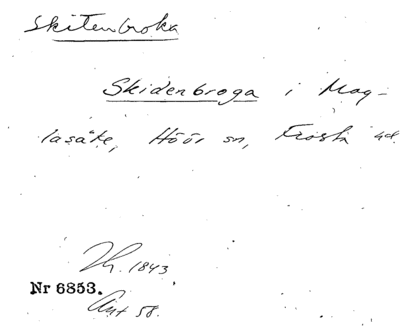 Skitenbroka
Skidenbroga i Mag-
lasäte, Höör sn, Frosta hd.
Th. 1843
Nr 6853.
Ant 58.